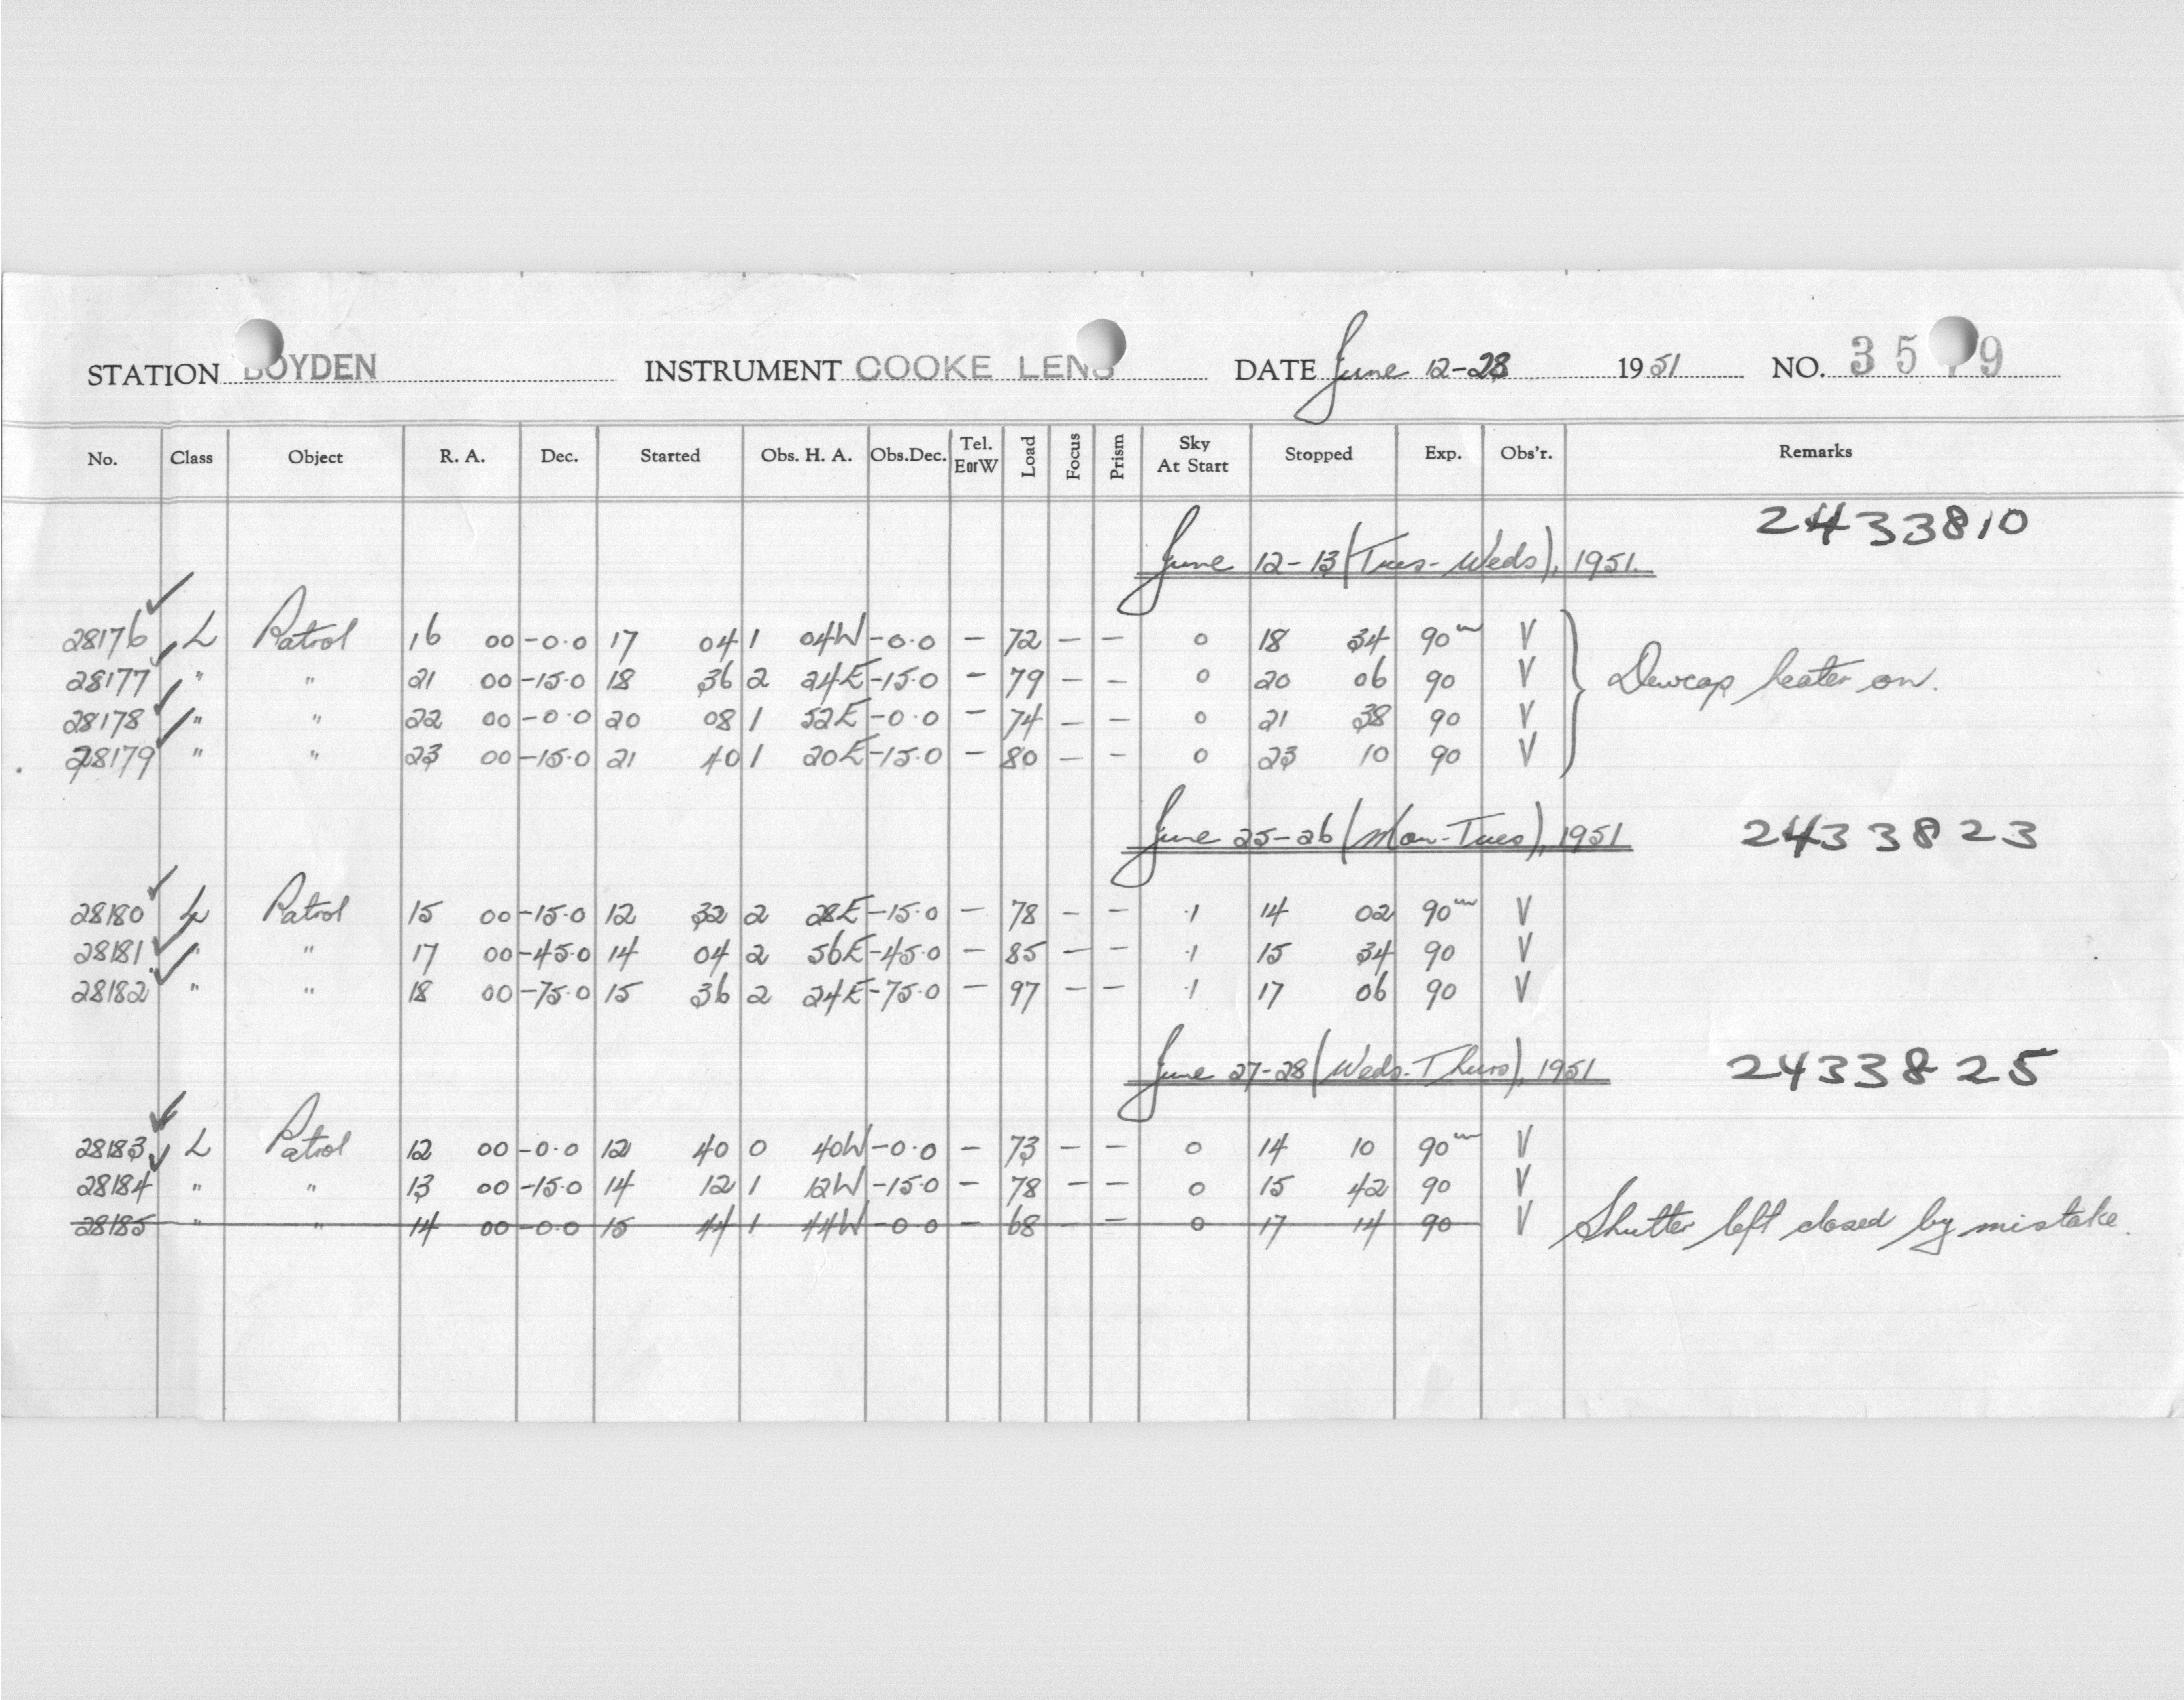 STATION BOYDEN INSTRUMENT COOKE LENS DATE June 12-28 1951 NO. 35 9
No. Class Object R. A. Dec. Started Obs. H. A. Obs.Dec. Tel. EorW Load Focus Prism Sky At Start Stopped Exp. Obs'r. Remarks
2433810
June 12-13 (Tues-Weds), 1951.
28176 L Patrol 16 00 -0.0 17 04 1 04W -0.0 - 72 - - 0 18 34 90m V
28177 " " 21 00 -15.0 18 36 2 24E -15.0 - 79 - - 0 20 06 90 V Dewcap heater on.
28178 " " 22 00 -0.0 20 08 1 52E -0.0 - 74 - - 0 21 38 90 V
28179 " " 23 00 -15.0 21 40 1 20E -15.0 - 80 - - 0 23 10 90 V
June 25-26 (Mon-Tues), 1951 2433823
28180 L Patrol 15 00 -15.0 12 32 2 28E -15.0 - 78 - - .1 14 02 90m V
28181 " " 17 00 -45.0 14 04 2 56E -45.0 - 85 - - .1 15 34 90 V
28182 " " 18 00 -75.0 15 36 2 24E -75.0 - 97 - - .1 17 06 90 V
June 27-28 (Weds-Thurs), 1951 2433825
28183 L Patrol 12 00 -0.0 12 40 0 40W -0.0 - 73 - - 0 14 10 90m V
28184 " " 13 00 -15.0 14 12 1 12W -15.0 - 78 - - 0 15 42 90 V
28185 " " 14 00 -0.0 15 44 1 44W -0.0 - 68 - - 0 17 14 90 V Shutter left closed by mistake.